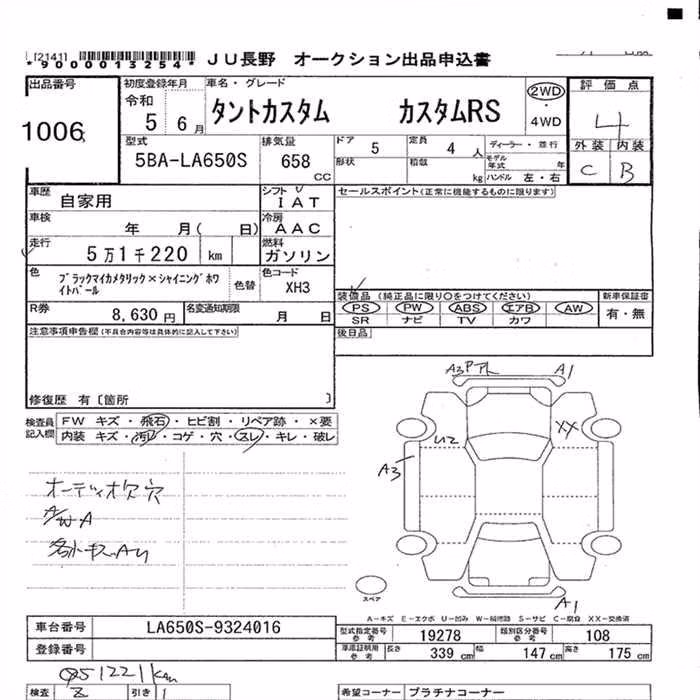 [2141]
*9000013254* JU長野 オークション出品申込書
出品番号 初度登録年月 車名・グレード 2WD 評価点
1006 令和 5 6月 タントカスタム カスタムRS ・ 4WD 4
型式 排気量 ドア 5 定員 4人 ディーラー・並行 外装 内装
5BA-LA650S 658 CC 形状 積載 kg モデル年式 年 ハンドル 左・右 C B
車歴 自家用 シフト IAT セールスポイント(正常に機能するものに限ります)
車検 年 月( 日) 冷房 AAC
走行 5万1千220 km 燃料 ガソリン
色 ブラックマイカメタリック×シャイニングホワイトパール 色替 色コード XH3
装備品 (純正品に限り○をつけてください) 新車保証書
R券 8,630円 名変通知期限 月 日 PS PW ABS エアB AW 有・無
SR ナビ TV カワ
注意事項申告欄(不具合内容等は具体的に記入して下さい) 後日品
修復歴 有〔箇所 〕
検査員記入欄 FW キズ・飛石・ヒビ割・リペア跡・×要
内装 キズ・汚れ・コゲ・穴・スレ・キレ・破レ
A3 P アト A1
U2 XX
A3
オーディオ欠穴
A/W A
スペア
A1
A-キズ E-エクボ U-凹み W-補修跡 S-サビ C-腐食 XX-交換済
車台番号 LA650S-9324016 型式指定番号 参考 19278 類別区分番号 参考 108
登録番号 車庫証明用 参考 長さ 339cm 幅 147cm 高さ 175cm
051221
検査 引き 希望コーナー プラチナコーナー